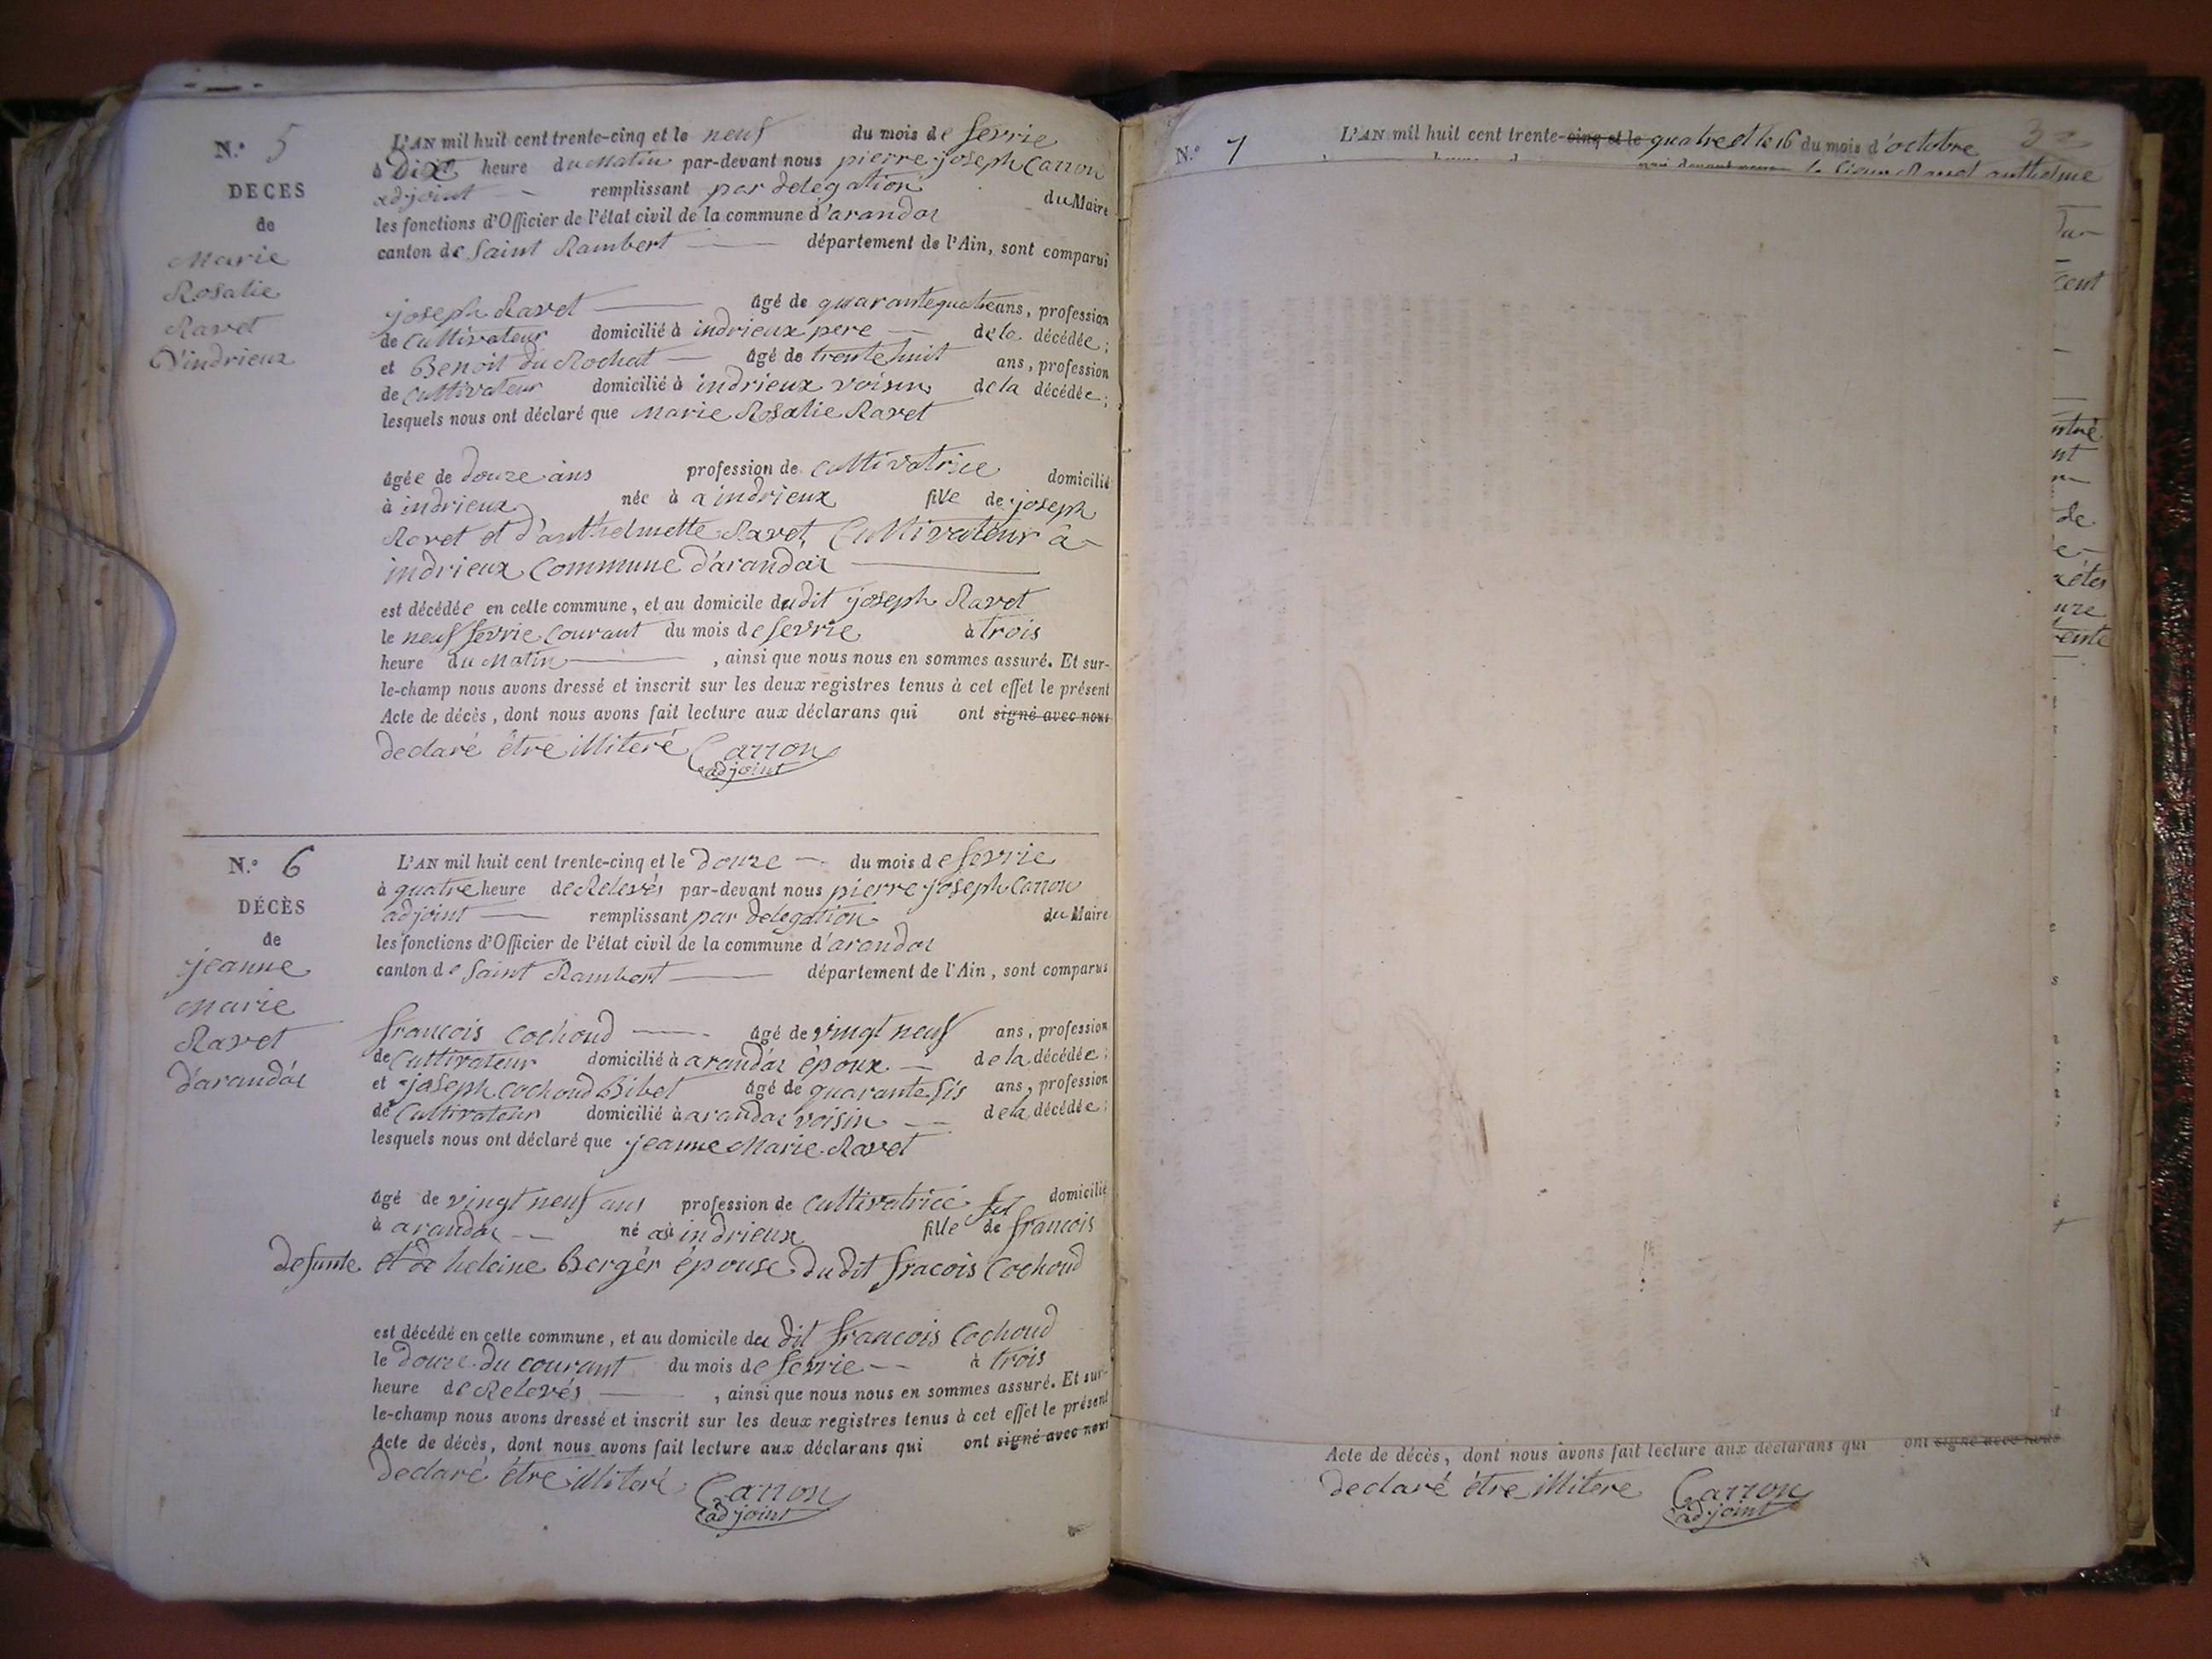 N.° 5
DECES
de
Marie
Rosalie
Ravet
D'indrieux
L'AN mil huit cent trente-cinq et le neuf du mois de fevrie
à Dix heure du Matin par-devant nous pierre joseph Carron
adjoint — remplissant par delegation du Maire
les fonctions d'Officier de l'état civil de la commune d'arandas
canton de Saint Rambert — département de l'Ain, sont comparus
joseph Ravet — âgé de quarante quatre ans, profession
de Cultivateur domicilié à indrieux pere — de la décédée;
et Benoit du Rochat — âgé de trente huit ans, profession
de Cultivateur domicilié à indrieux voisin de la décédée;
lesquels nous ont déclaré que Marie Rosalie Ravet
âgée de douze ans profession de Cultivatrice domicilié
à indrieux née à a indrieux fille de joseph
Ravet et d'anthelmette Ravet, Cultivateur à
indrieux Commune d'arandas —
est décédée en cette commune, et au domicile dudit joseph Ravet
le neuf fevrie Courant du mois de fevrie à trois
heure du Matin — , ainsi que nous nous en sommes assuré. Et sur-
le-champ nous avons dressé et inscrit sur les deux registres tenus à cet effet le présent
Acte de décès, dont nous avons fait lecture aux déclarans qui ont signé avec nous
declaré être illiteré Carron
adjoint
N.° 6
DÉCÈS
de
jeanne
Marie
Ravet
d'arandas
L'AN mil huit cent trente-cinq et le Douze — du mois de fevrie
à quatre heure de Relevés par-devant nous pierre joseph Carron
adjoint — remplissant par delegation du Maire
les fonctions d'Officier de l'état civil de la commune d'arandas
canton de Saint Rambert — département de l'Ain, sont comparus
francois Cochoud — âgé de vingt neuf ans, profession
de Cultivateur domicilié à arandas époux — de la décédée;
et joseph Cochoud Bibet âgé de quarante sis ans, profession
de Cultivateur domicilié à arandas voisin — de la décédée;
lesquels nous ont déclaré que jeanne Marie Ravet
âgé de vingt neuf ans profession de Cultivatrice domicilié
à arandas — né à indrieux fille de francois
defunte et de heleine Berger épouse du dit fracois Cochoud
est décédé en cette commune, et au domicile du dit francois Cochoud
le Douze du courant du mois de fevrie — à trois
heure de Relevés — , ainsi que nous nous en sommes assuré. Et sur-
le-champ nous avons dressé et inscrit sur les deux registres tenus à cet effet le présent
Acte de décès, dont nous avons fait lecture aux déclarans qui ont signé avec nous
declaré être illiteré Carron
adjoint
32
N.° 7
L'AN mil huit cent trente-cinq et le quatre et le 16 du mois d'octobre
le sieur Ravet anthelme
cent
nt
de
ure
Acte de décès, dont nous avons fait lecture aux déclarans qui ont signé avec nous
declaré être illitere Carron
adjoint